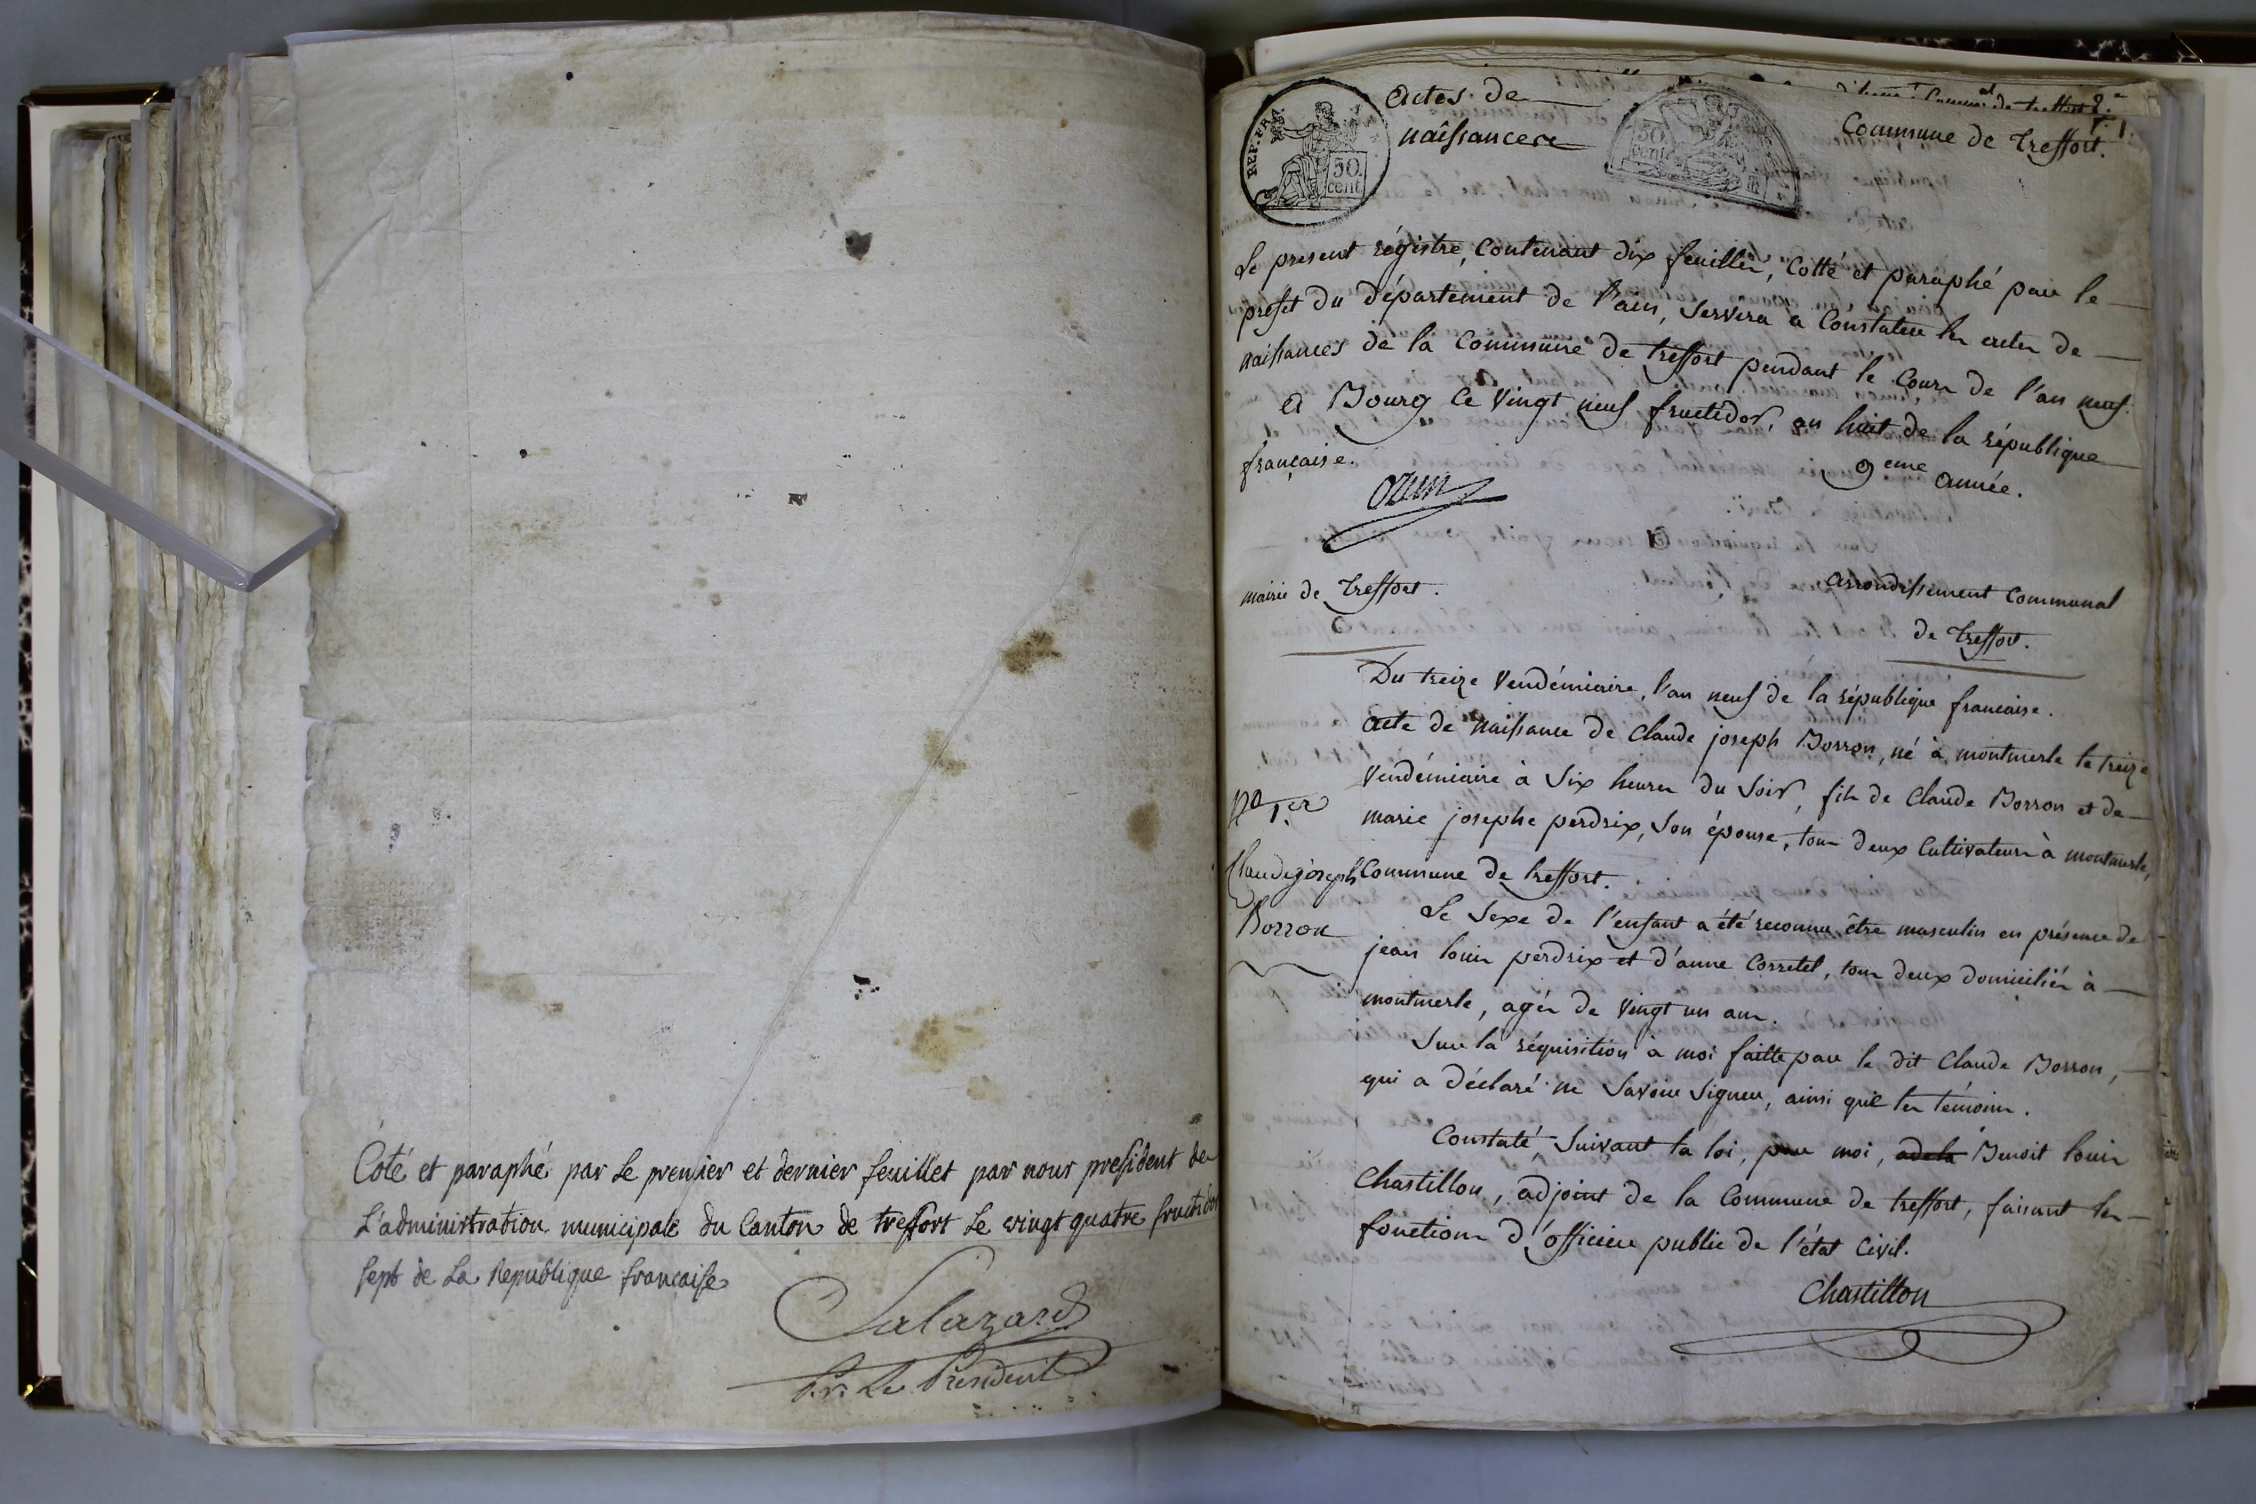 Coté et paraphé par Le premier et dernier feuillet par nour president de
L'administration municipale du Canton de treffort Le vingt quatre fructidor
sept de La Republique francaise
Salazard
Le President
Actes de
naissances
REP. FRA.
50 cent
50 cent
Commune de treffort.
Le present régistre, Contenant dix feuillets, Cotté et paraphé par le
préfet du département de l'ain, Servira a Constater les actes de
naissances de la Commune de treffort pendant le Cours de l'an neuf.
A Bourg Ce Vingt neuf fructidor, an huit de la république
française.
9eme année.
ozun
mairie de treffort.
arrondissement Communal
de treffort.
Du treize Vendémiaire, l'an neuf de la république francaise.
acte de naissance de Claude joseph Borron, né à montmerle le treize
Vendémiaire à Six heures du Soir, fils de Claude Borron et de
marie josephe perdrix, Son épouse, tous deux Cultivateurs à montmerle,
Commune de treffort.
No 1.er
Claude joseph
Borron
Le Sexe de l'enfant a été reconnu être masculin en présence de
jean louis perdrix et d'anne Corretel, tous deux domiciliés à
montmerle, agés de Vingt un ans.
Sur la réquisition à moi faitte par le dit Claude Borron,
qui a déclaré ne Savoir Signer, ainsi que les témoins.
Constaté, Suivant la loi, par moi, Benoit louis
Chastillon, adjoint de la Commune de treffort, faisant les
fonctions d'officier public de l'état Civil.
Chastillon